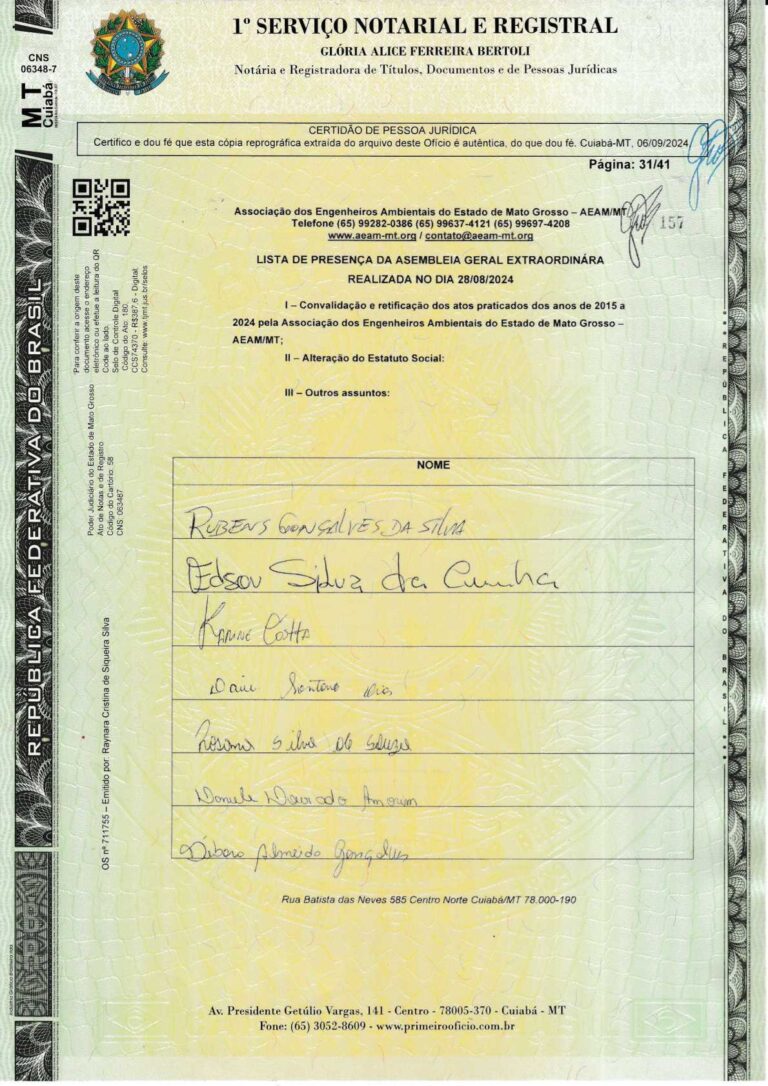 1º SERVIÇO NOTARIAL E REGISTRAL
GLÓRIA ALICE FERREIRA BERTOLI
Notária e Registradora de Títulos, Documentos e de Pessoas Jurídicas
CNS
06348-7
MT
Cuiabá
CERTIDÃO DE PESSOA JURÍDICA
Certifico e dou fé que esta cópia reprográfica extraída do arquivo deste Ofício é autêntica, do que dou fé. Cuiabá-MT, 06/09/2024
Página: 31/41
157
Associação dos Engenheiros Ambientais do Estado de Mato Grosso – AEAM/MT
Telefone (65) 99282-0386 (65) 99637-4121 (65) 99697-4208
www.aeam-mt.org / contato@aeam-mt.org
LISTA DE PRESENÇA DA ASEMBLEIA GERAL EXTRAORDINÁRA
REALIZADA NO DIA 28/08/2024
I – Convalidação e retificação dos atos praticados dos anos de 2015 a
2024 pela Associação dos Engenheiros Ambientais do Estado de Mato Grosso –
AEAM/MT;
II – Alteração do Estatuto Social:
III – Outros assuntos:
Para conferir a origem deste
documento acesse o endereço
eletrônico ou efetue a leitura do QR
Code ao lado.
Selo de Controle Digital
Código do Ato: 180
CCS74370 - R$387,6 - Digital.
Consulte: www.tjmt.jus.br/selos
Poder Judiciário do Estado de Mato Grosso
Ato de Notas e de Registro
Código do Cartório: 58
CNS: 063487
OS nº 711755 – Emitido por: Raynara Cristina de Siqueira Silva
REPÚBLICA FEDERATIVA DO BRASIL
NOME
RUBENS GONÇALVES DA SILVA
Edson Silva da Cunha
KARINE COSTTA
Santana Dias
Rosana Silva de Souza
Daniele Dourado Amorim
Débora Almeida Gonçalves
Rua Batista das Neves 585 Centro Norte Cuiabá/MT 78.000-190
REPÚBLICA FEDERATIVA DO BRASIL
Av. Presidente Getúlio Vargas, 141 - Centro - 78005-370 - Cuiabá - MT
Fone: (65) 3052-8609 - www.primeirooficio.com.br